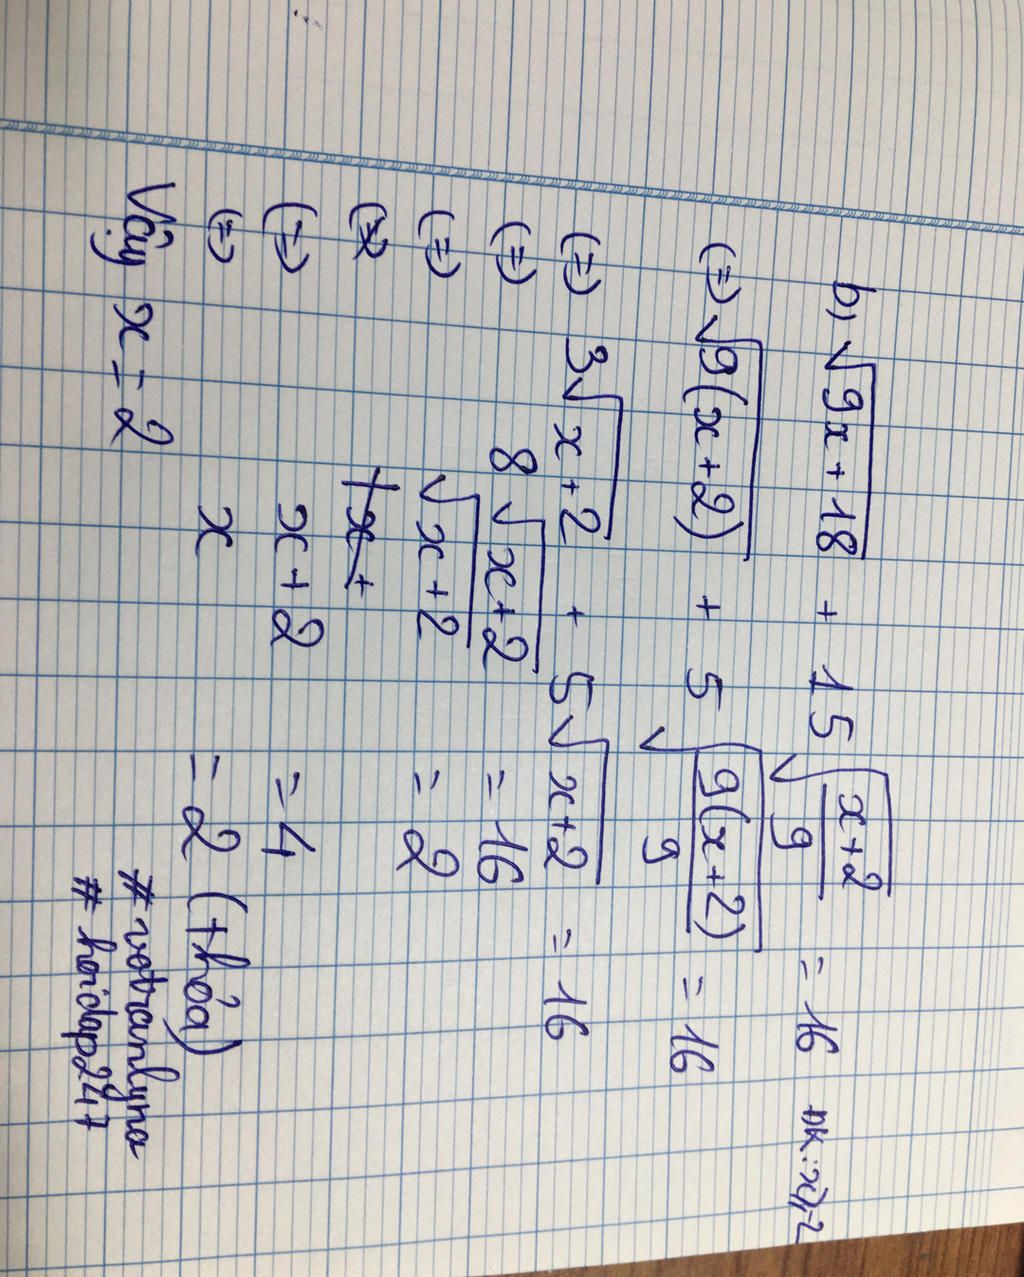 b) √(9x + 18) + 15√((x+2)/9) = 16 ĐK: x ≥ -2
(=) √(9(x+2)) + 5√(9(x+2)/9) = 16
(=) 3√(x+2) + 5√(x+2) = 16
(=) 8√(x+2) = 16
(=) √(x+2) = 2
(=) x+2 = 4
(=) x = 2 (thỏa)
Vậy x = 2
#votranlyna
#hoidap247